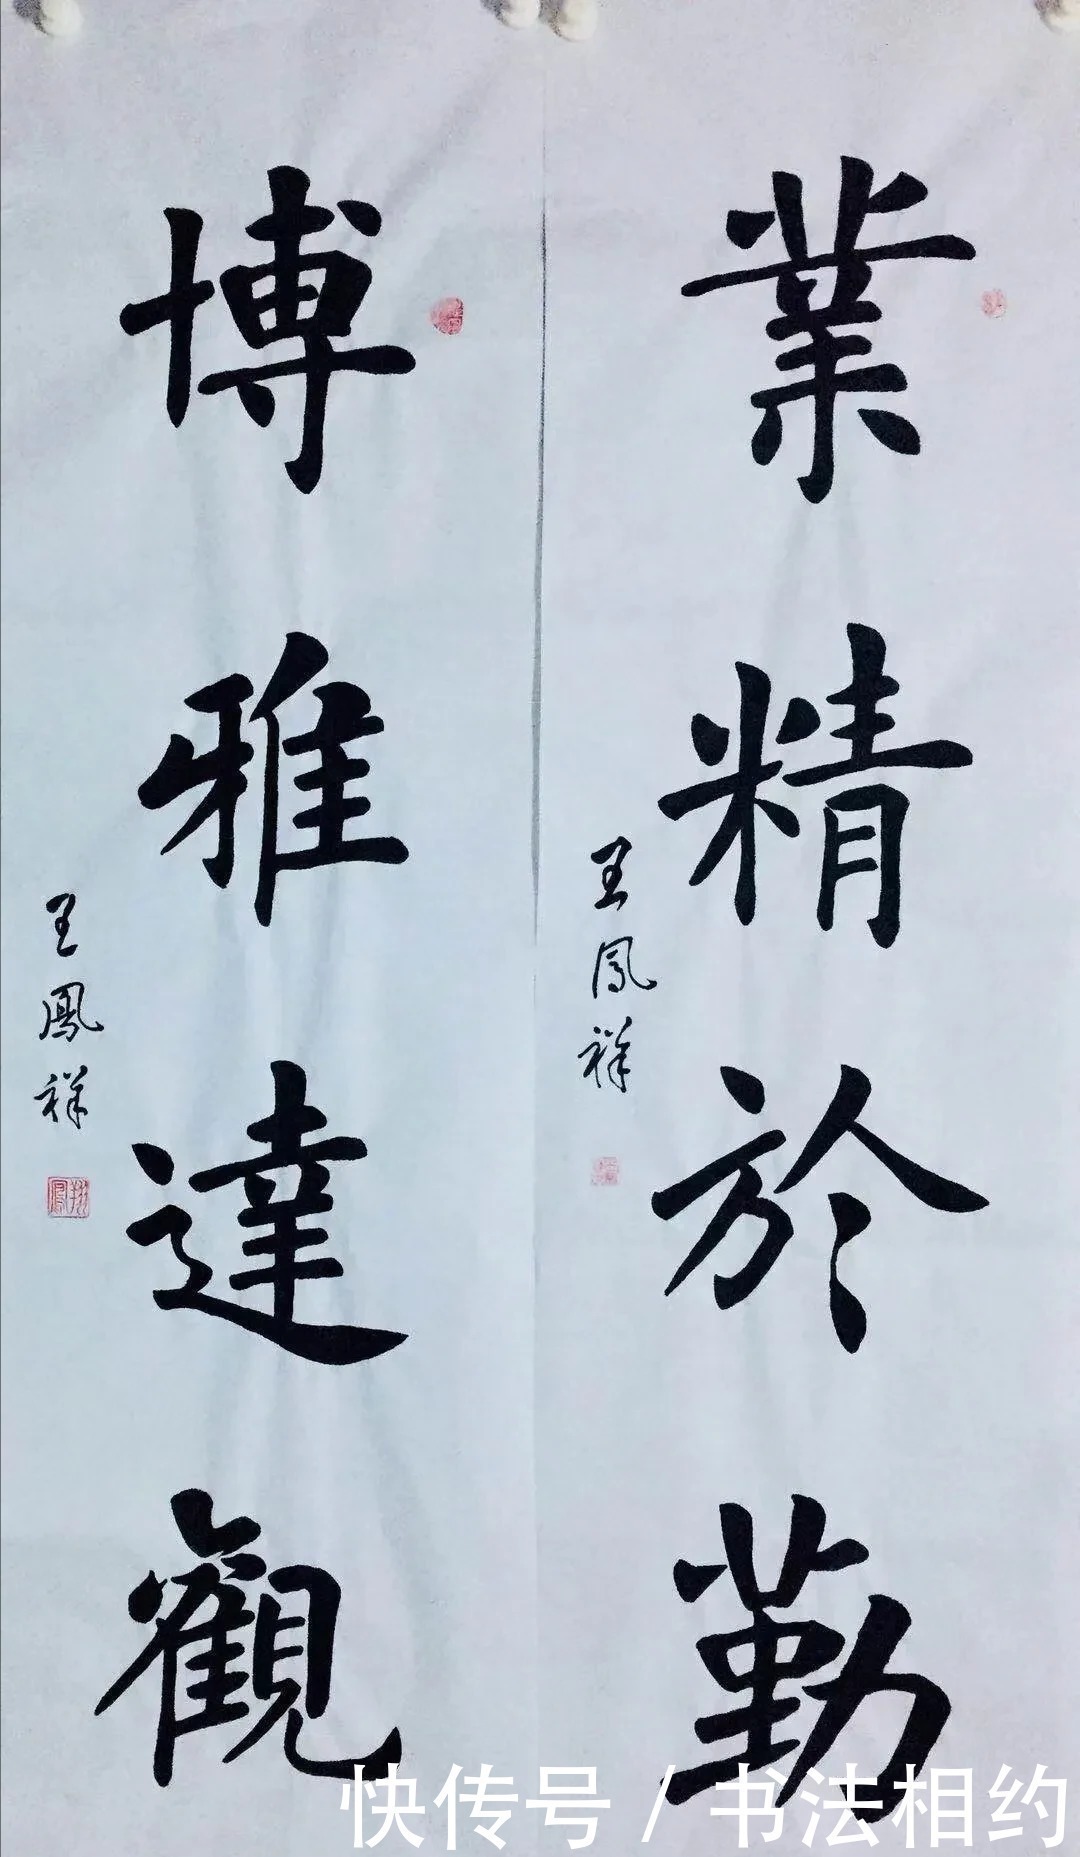 業精於勤
王鳳祥
博雅達觀
王鳳祥
快传号 / 书法相约